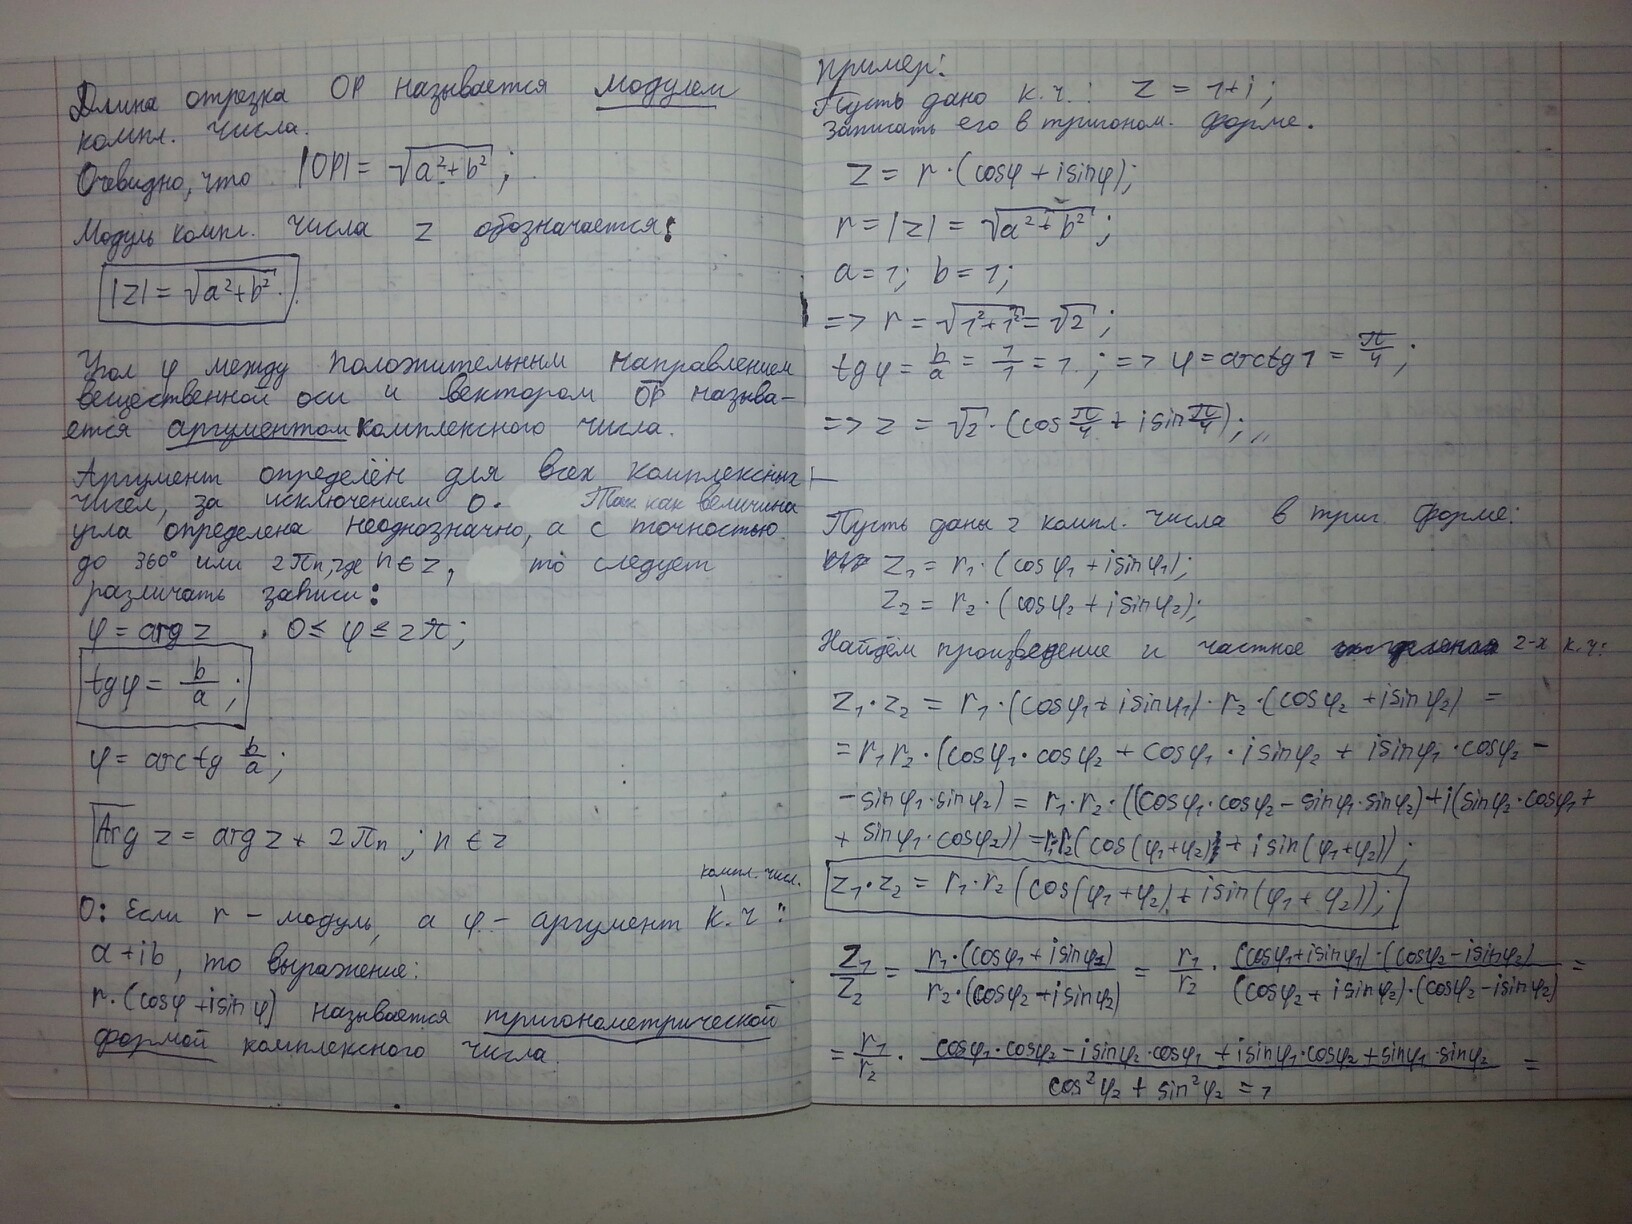 Длина отрезка OP называется модулем
компл. числа.
Очевидно, что |OP| = √(a²+b²);
Модуль компл. числа z обозначается:
|z| = √(a²+b²).
Угол φ между положительным направлением
вещественной оси и вектором OP называ-
ется аргументом комплексного числа.
Аргумент определён для всех комплексных
чисел, за исключением 0. Так как величина
угла определена неоднозначно, а с точностью
до 360° или 2πn, где n ∈ z, то следует
различать записи:
φ = arg z . 0 ≤ φ ≤ 2π;
tgφ = b/a;
φ = arctg b/a;
Arg z = arg z + 2πn; n ∈ z
компл. числ.
О: Если r – модуль, а φ – аргумент к.ч :
a + ib, то выражение:
r·(cosφ + isinφ) называется тригонометрической
формой комплексного числа.
Пример:
Пусть дано к.ч.: z = 1+i;
записать его в тригоном. форме.
z = r·(cosφ + isinφ);
r = |z| = √(a²+b²);
a = 1; b = 1;
=> r = √(1²+1²) = √2;
tgφ = b/a = 1/1 = 1.; => φ = arctg1 = π/4;
=> z = √2·(cos π/4 + isin π/4);,,
Пусть даны 2 компл. числа в триг. форме:
z₁ = r₁·(cosφ₁ + isinφ₁);
z₂ = r₂·(cosφ₂ + isinφ₂);
Найдём произведение и частное 2-х к.ч:
z₁·z₂ = r₁·(cosφ₁ + isinφ₁)·r₂·(cosφ₂ + isinφ₂) =
= r₁r₂·(cosφ₁·cosφ₂ + cosφ₁·isinφ₂ + isinφ₁·cosφ₂ –
– sinφ₁·sinφ₂) = r₁·r₂·((cosφ₁·cosφ₂ – sinφ₁·sinφ₂) + i(sinφ₂·cosφ₁ +
+ sinφ₁·cosφ₂)) = r₁·r₂(cos(φ₁+φ₂) + isin(φ₁+φ₂));
z₁·z₂ = r₁·r₂(cos(φ₁+φ₂) + isin(φ₁+φ₂));
z₁/z₂ = r₁·(cosφ₁ + isinφ₁)/r₂·(cosφ₂ + isinφ₂) = r₁/r₂ · (cosφ₁+isinφ₁)·(cosφ₂–isinφ₂)/(cosφ₂+isinφ₂)·(cosφ₂–isinφ₂) =
= r₁/r₂ · cosφ₁·cosφ₂ – isinφ₂·cosφ₁ + isinφ₁·cosφ₂ + sinφ₁·sinφ₂ / cos²φ₂ + sin²φ₂ = 1 =